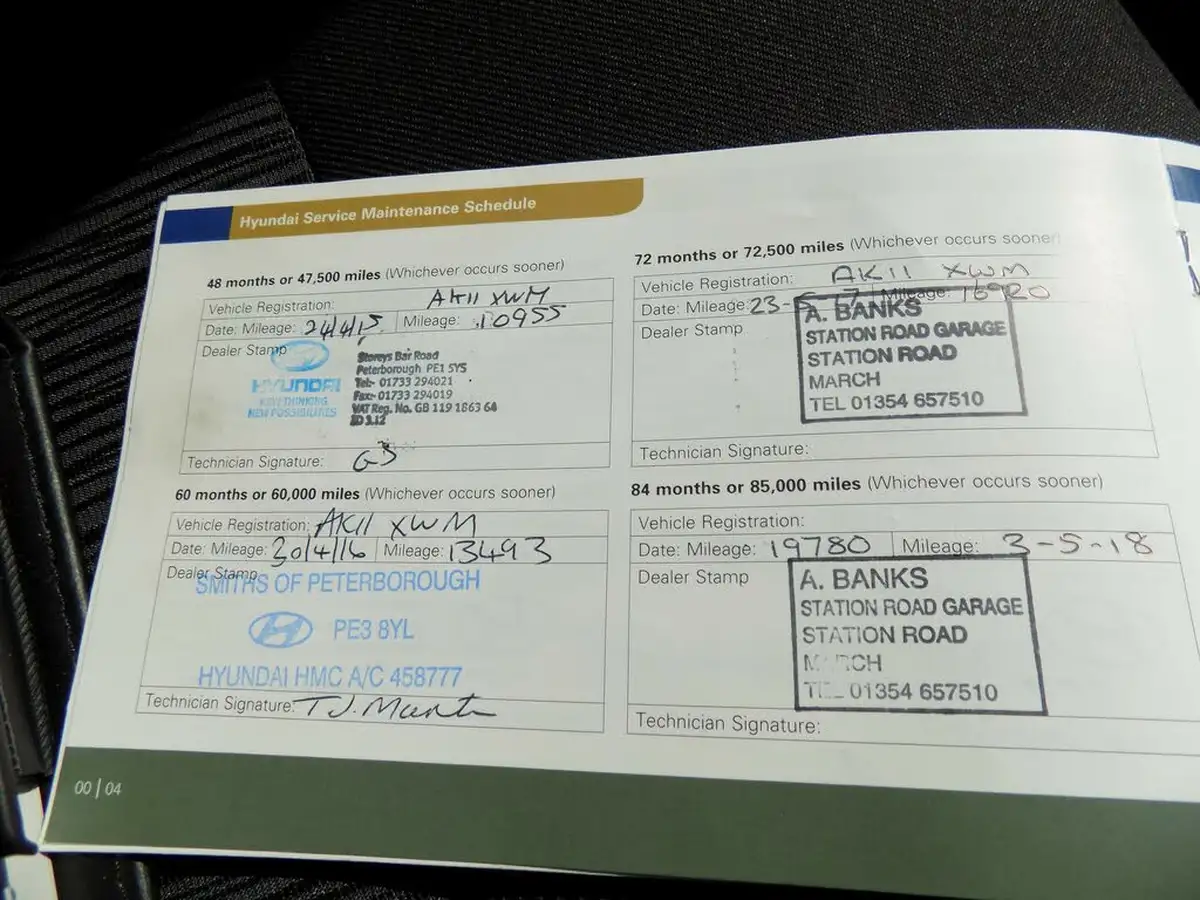 Hyundai Service Maintenance Schedule
48 months or 47,500 miles (Whichever occurs sooner)
Vehicle Registration: AK11 XWM
Date: Mileage: 24/4/15 Mileage: 10955
Dealer Stamp
HYUNDAI
NEW THINKING.
NEW POSSIBILITIES
Storeys Bar Road
Peterborough PE1 5YS
Tel:- 01733 294021
Fax:- 01733 294019
VAT Reg. No. GB 119 1863 64
Technician Signature: GB
60 months or 60,000 miles (Whichever occurs sooner)
Vehicle Registration: AK11 XWM
Date: Mileage: 20/4/16 Mileage: 13493
Dealer Stamp
SMITHS OF PETERBOROUGH
PE3 8YL
HYUNDAI HMC A/C 458777
Technician Signature: T J.
72 months or 72,500 miles (Whichever occurs sooner)
Vehicle Registration: AK11 XWM
Date: Mileage: 23-5-17 Mileage: 16920
Dealer Stamp
A. BANKS
STATION ROAD GARAGE
STATION ROAD
MARCH
TEL 01354 657510
Technician Signature:
84 months or 85,000 miles (Whichever occurs sooner)
Vehicle Registration:
Date: Mileage: 19780 Mileage: 3-5-18
Dealer Stamp
A. BANKS
STATION ROAD GARAGE
STATION ROAD
MARCH
TEL 01354 657510
Technician Signature:
00 | 04